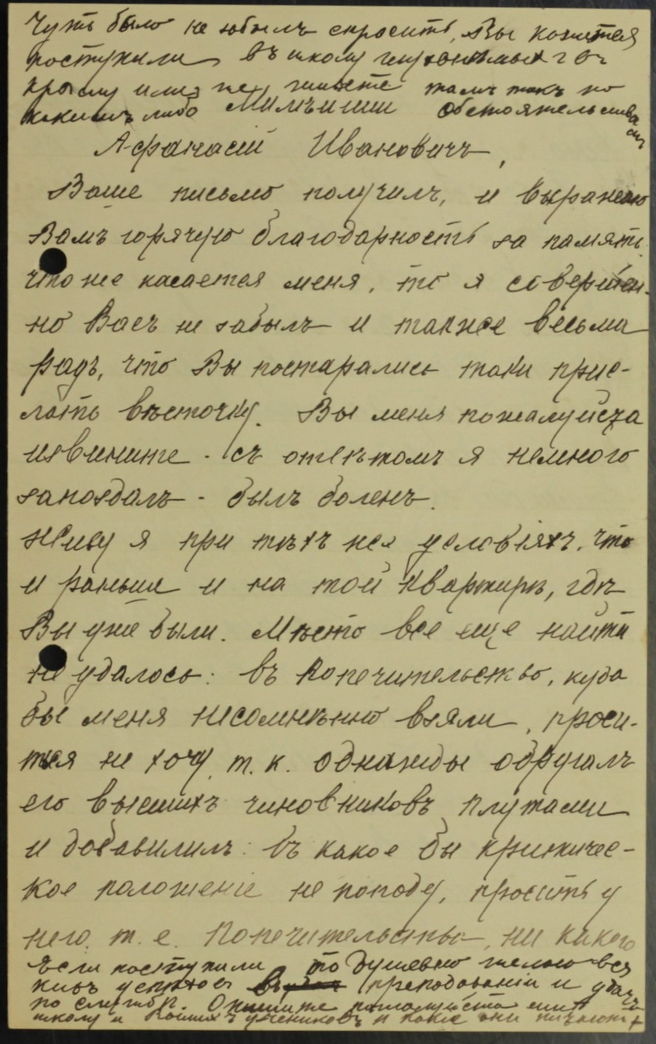 Чуть было не забылъ спросить, Вы кажется
поступили въ школу глухонѣмыхъ въ
не живете тамъ такъ по
какимъ либо обстоятельствамъ
Афанасій Ивановичъ,
Ваше письмо получилъ, и выражаю
Вамъ горячую благодарность за память
что же касается меня, то я совершен-
но Васъ не забылъ и также весьма
радъ, что Вы постарались таки прис-
лать вѣсточку. Вы меня пожалуйста
извините - съ отвѣтомъ я немного
запоздалъ - былъ боленъ.
Живу я при тѣхъ же условіяхъ, что
и раньше и на той квартирѣ, гдѣ
Вы уже были. Мѣсто все еще найти
не удалось: въ Попечительство, куда
бы меня несомнѣнно взяли, проси-
ться не хочу, т. к. однажды обругалъ
его высшихъ чиновниковъ плутами
и добавилъ: въ какое бы критичес-
кое положеніе не попаду, просить у
него, т. е. Попечительства, ни какого
Если поступили то душевно желаю вся
кихъ успѣховъ преподованіи и удачъ
по службѣ. Опишите пожалуйста
школу и Вашихъ учениковъ и какъ они